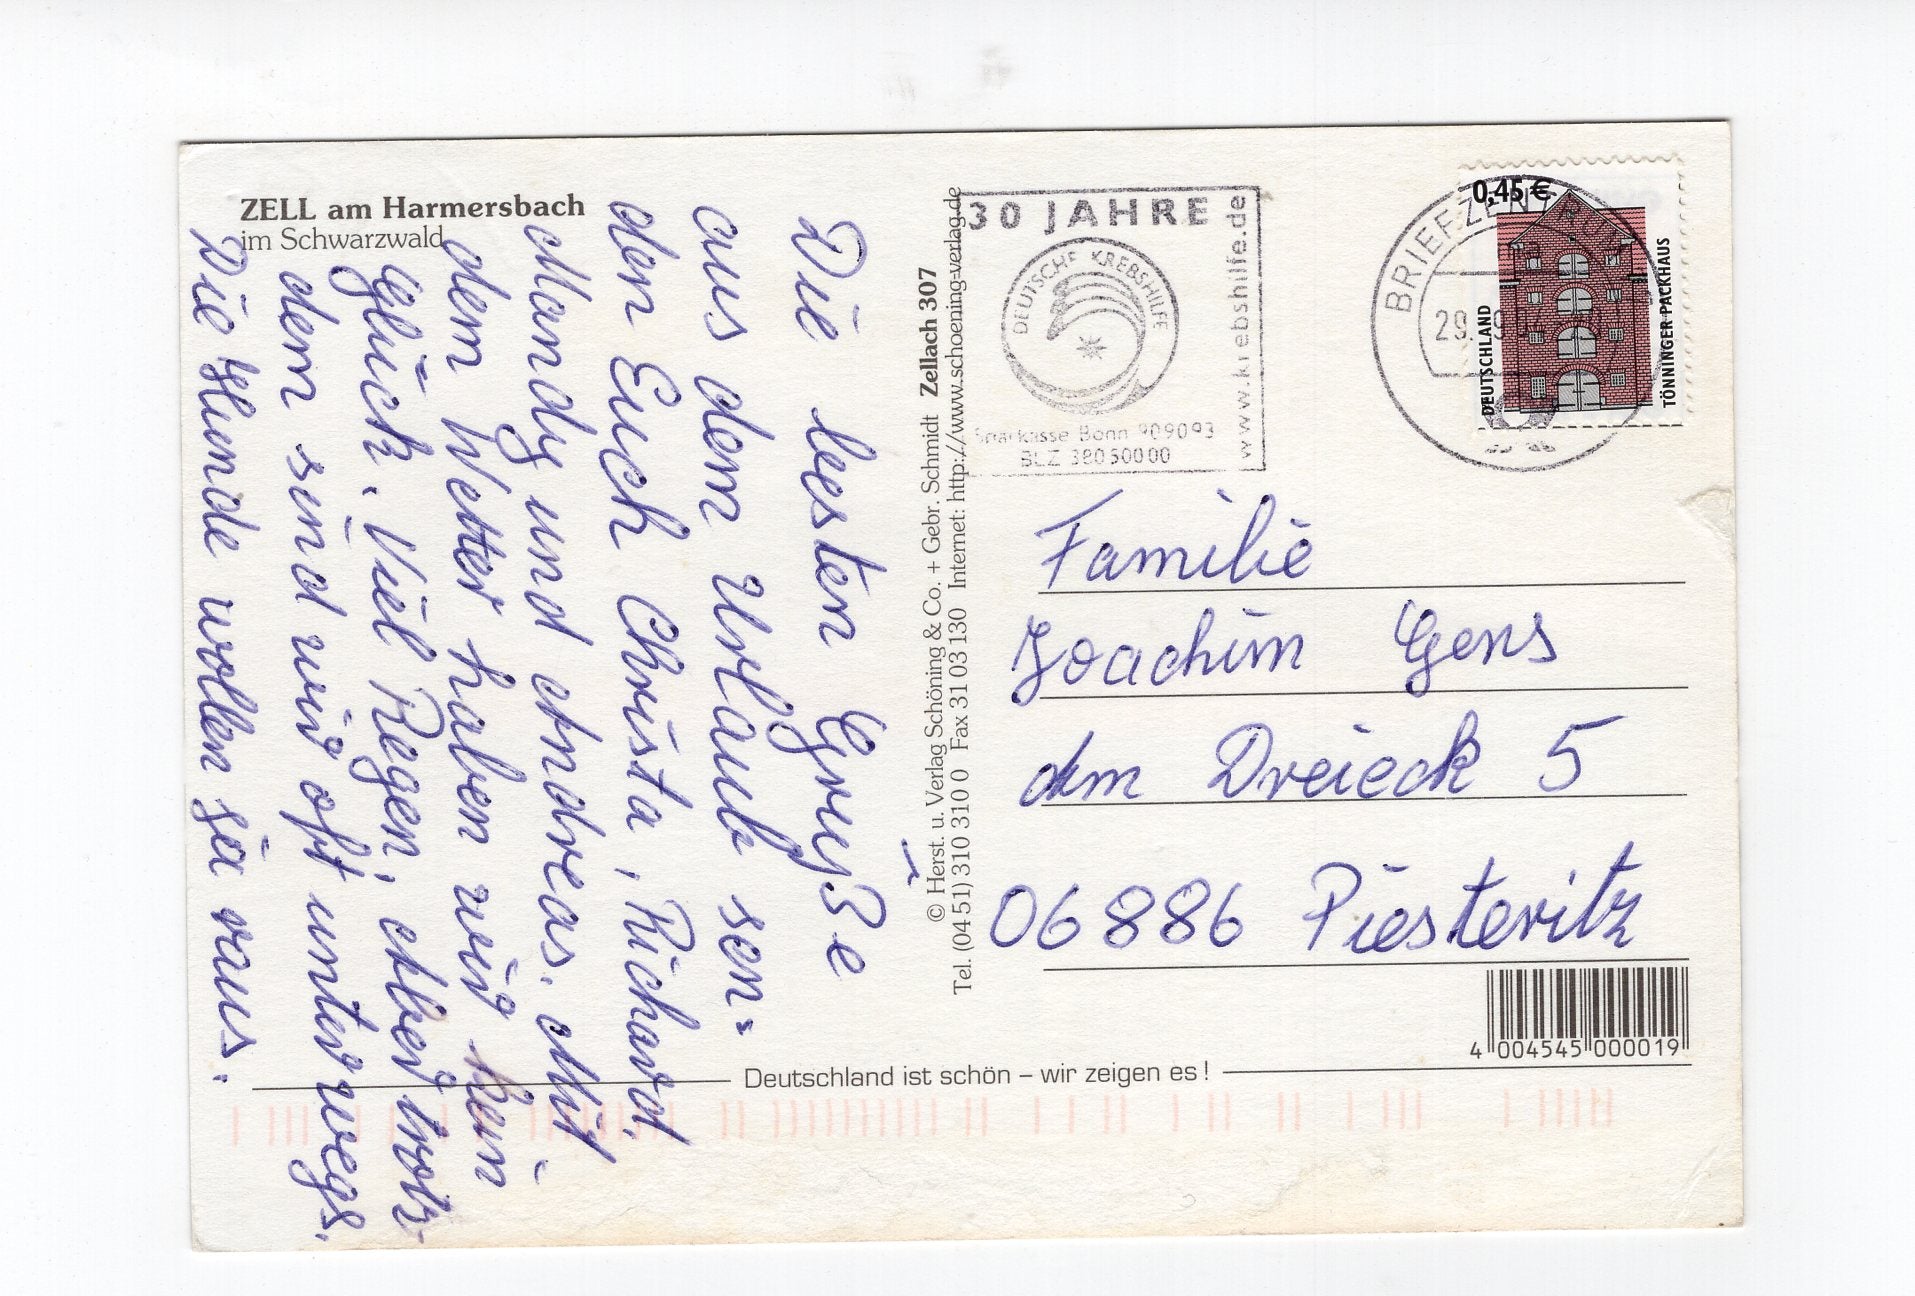 ZELL am Harmersbach
im Schwarzwald
Die besten Grüße
aus dem Urlaub sen=
den Euch Christa, Richard,
Mandy und Andreas. Mit
dem Wetter haben wir kein
Glück. Viel Regen. Aber trotz-
dem sind wir oft unterwegs.
Die Hunde wollen ja raus.
© Herst. u. Verlag Schöning & Co. + Gebr. Schmidt Zellach 307
Tel. (04 51) 310 310 0 Fax 31 03 130 Internet: http://www.schoening-verlag.de
30 JAHRE
DEUTSCHE KREBSHILFE
Sparkasse Bonn 909093
BLZ 38050000
www.krebshilfe.de
BRIEFZENTRUM
29.
0,45 €
DEUTSCHLAND
TÖNNINGER PACKHAUS
Familie
Joachim Gens
Am Dreieck 5
06886 Piesteritz
4 004545 000019
Deutschland ist schön – wir zeigen es !